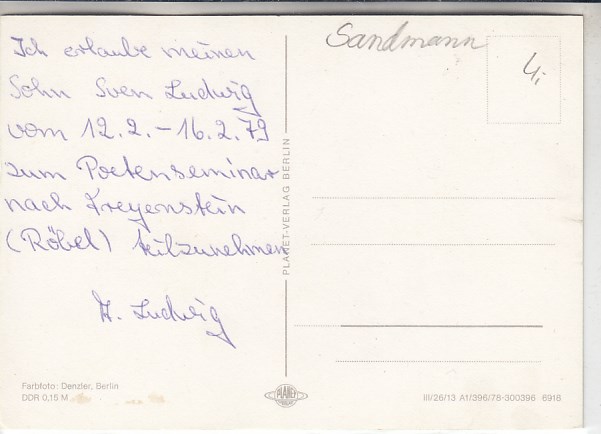 Ich erlaube meinen
Sohn Sven Ludwig
vom 12.2.-16.2.79
zum Poetenseminar
nach Freyenstein
(Röbel) teilzunehmen
H. Ludwig
Sandmann
4,-
PLANET-VERLAG BERLIN
Farbfoto: Denzler, Berlin
DDR 0,15 M
PLANET
III/26/13 A1/396/78-300396 6918